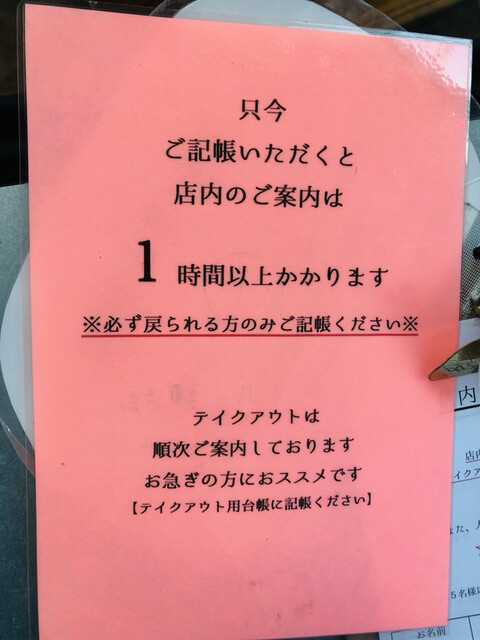 只今
ご記帳いただくと
店内のご案内は
1 時間以上かかります
※必ず戻られる方のみご記帳ください※
テイクアウトは
順次ご案内しております
お急ぎの方におススメです
【テイクアウト用台帳に記帳ください】
内
店内
イクア
また、
5名様以
お名前